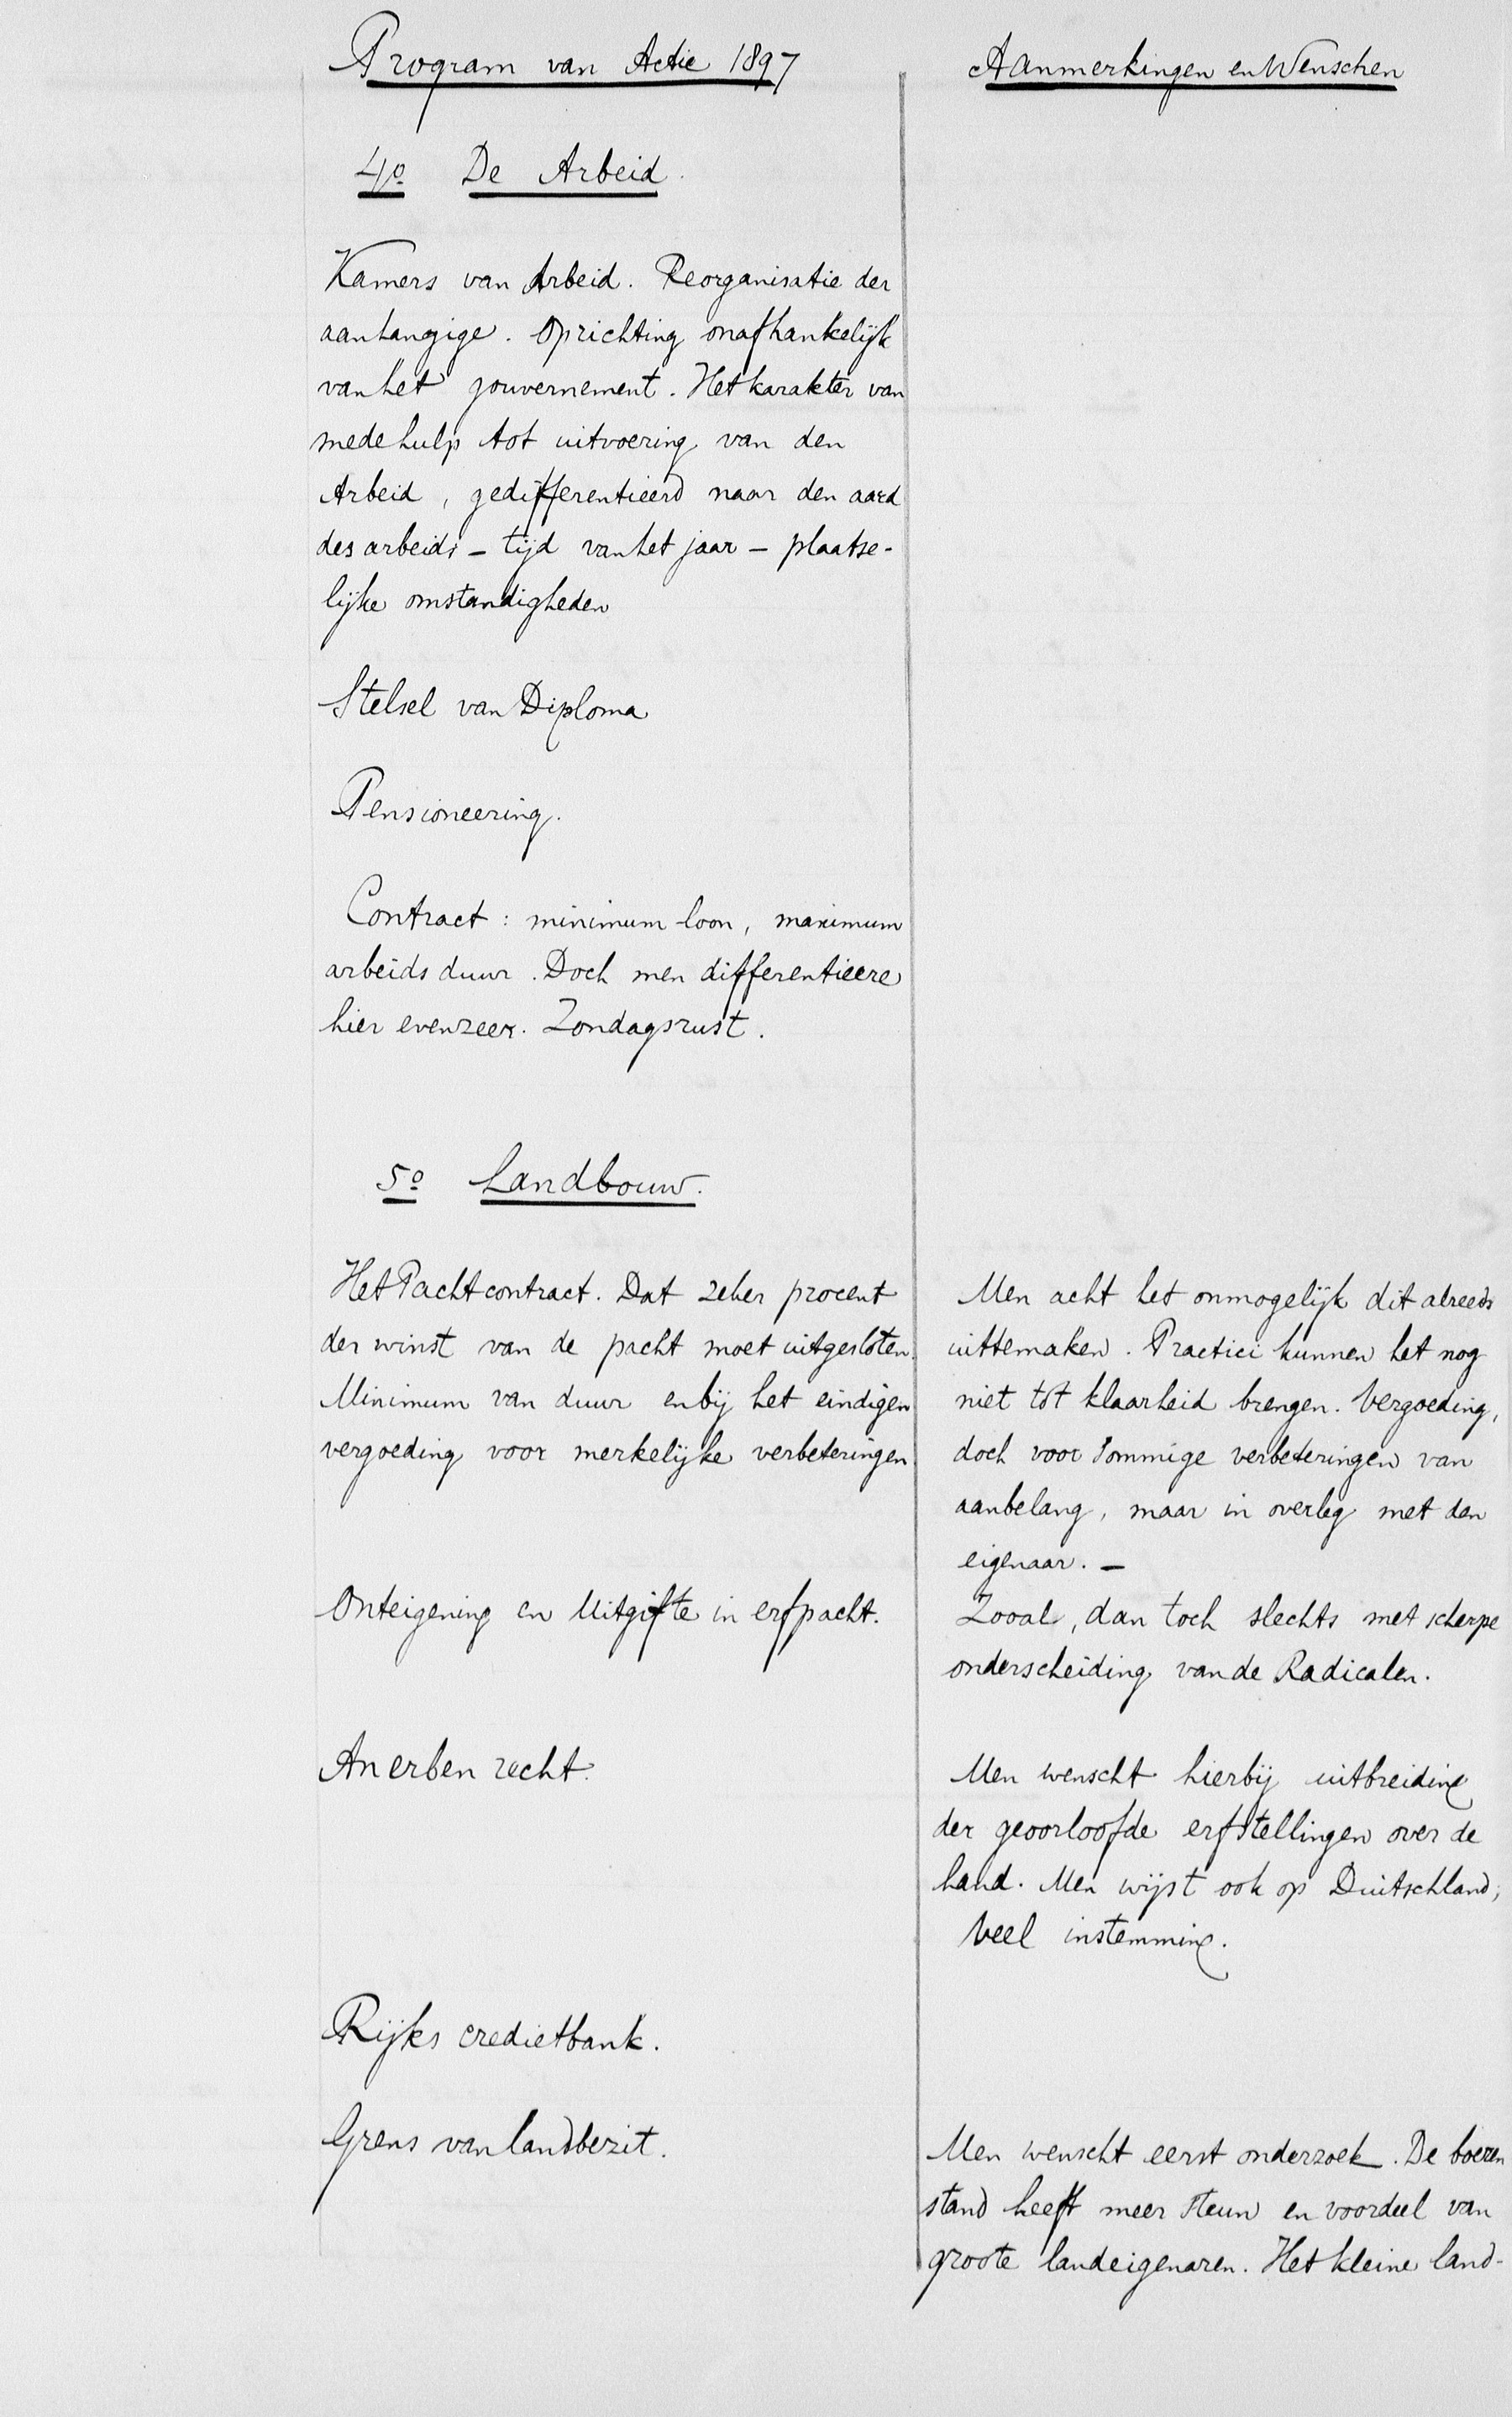 Program van Actie 1897
4o De Arbeid.
Kamers van Arbeid. Reorganisatie der
aanhangige. Oprichting onafhankelijk
van het gouvernement. Het karakter van
mede hulp tot uitvoering van den
Arbeid, gedifferentieerd naar den aard
des arbeids - tijd van het jaar - plaatse-
lijke omstandigheden
Stelsel van Diploma
Pensioneering.
Contract: minimum loon, maximum
arbeids duur. Doch men differentieere
hier evenzeer. Zondagsrust.
5o Landbouw.
Het Pachtcontract. Dat zeker procent
der winst van de pacht moet uitgesloten.
Minimum van duur en bij het eindigen
vergoeding voor merkelijke verbeteringen
Onteigening en Uitgifte in erfpacht.
Anerben recht.
Rijks credietbank.
Grens van landbezit.
Aanmerkingen en Wenschen
Men acht het onmogelijk dit alreeds
uittemaken. Practici kunnen het nog
niet tot klaarheid brengen. Vergoeding,
doch voor sommige verbeteringen van
aanbelang, maar in overleg met den
eigenaar. -
Zooal, dan toch slechts met scherpe
onderscheiding van de Radicalen.
Men wenscht hierbij uitbreiding
der geoorloofde erfstellingen over de
hand. Men wijst ook op Duitschland;
Veel instemming.
Men wenscht eerst onderzoek. De boeren
stand heeft meer steun en voordeel van
groote landeigenaren. Het kleine land-